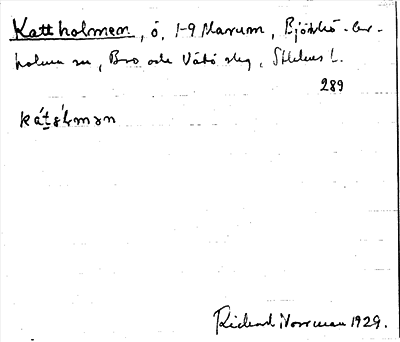 Katt holmen, ö, 1-9 Marum, Björkö-Ar-
holma sn, Bro och Vätö skg, Sthlms l.
289
Richard Norrman 1929.